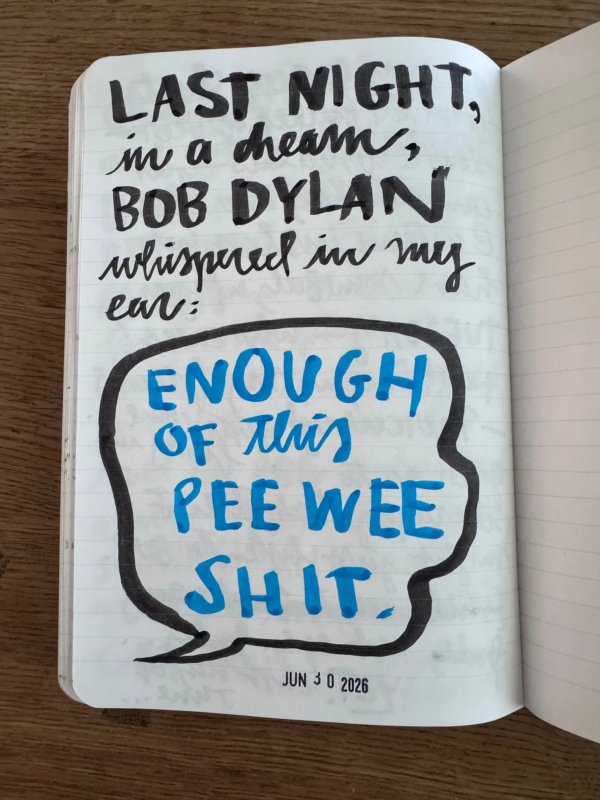 LAST NIGHT,
in a dream,
BOB DYLAN
whispered in my
ear:
ENOUGH
OF this
PEE WEE
SHIT.
JUN 30 2026